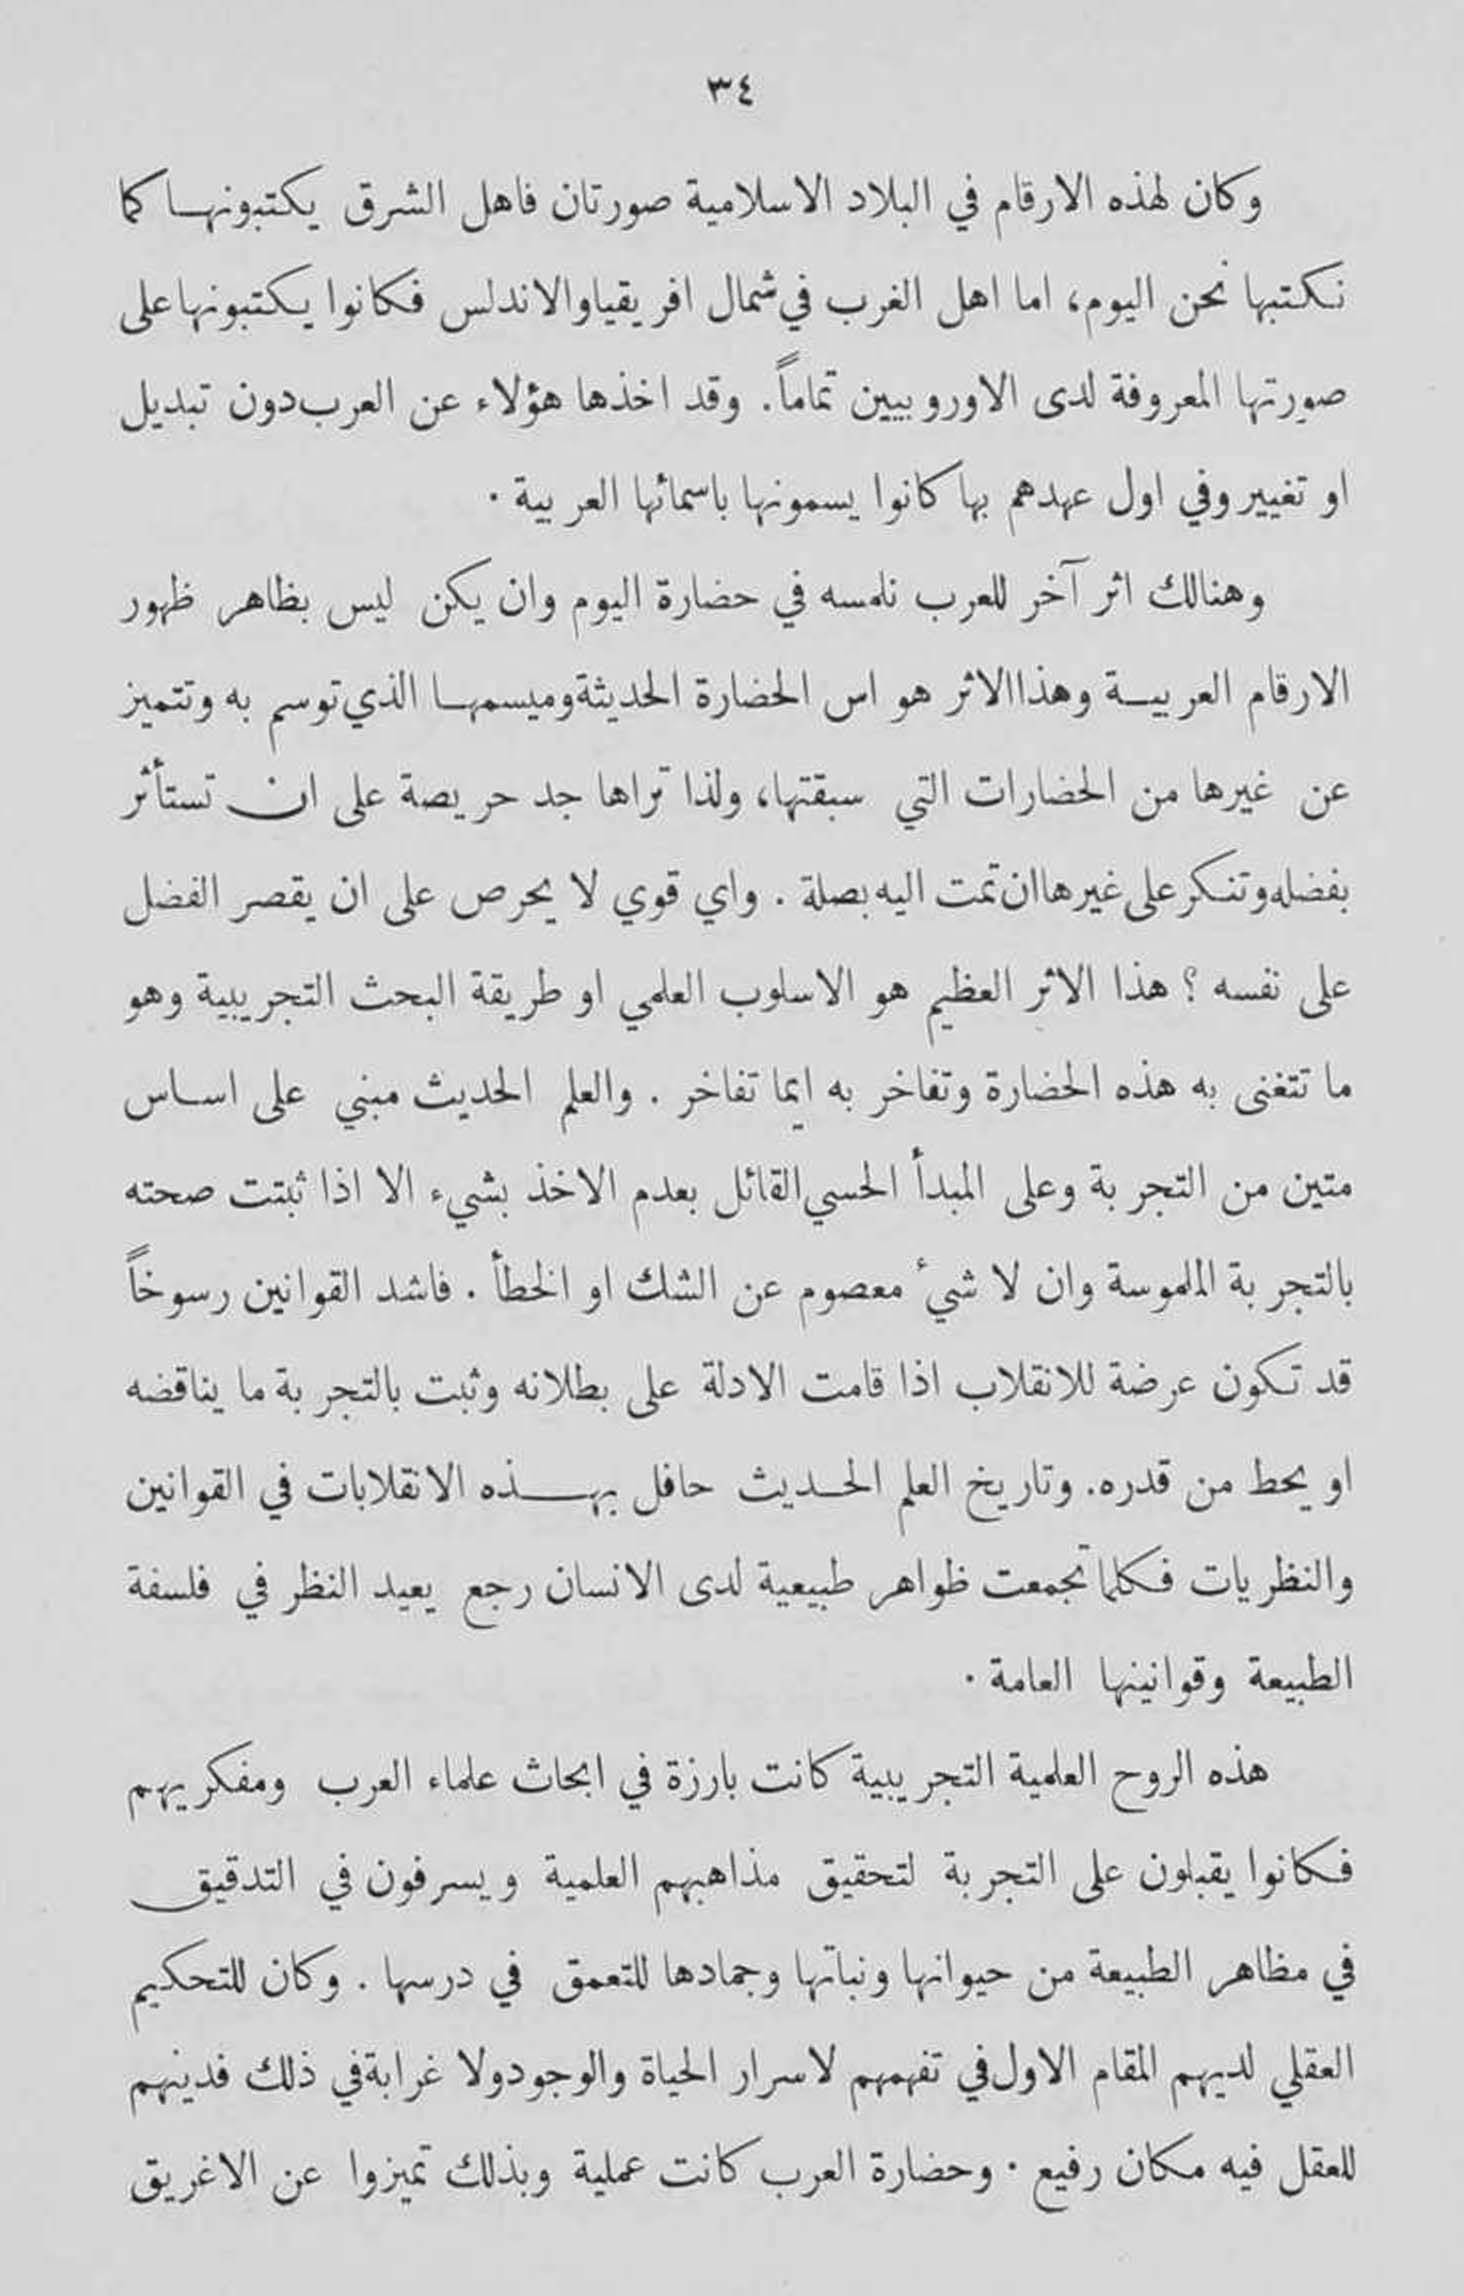 ٣٤
وكان لهذه الارقام في البلاد الاسلامية صورتان فاهل الشرق يكتبونها كما
نكتبها نحن اليوم، اما اهل الغرب في شمال افريقيا والاندلس فكانوا يكتبونها على
صورتها المعروفة لدى الاوروبيين تماماً. وقد اخذها هؤلاء عن العرب دون تبديل
او تغيير وفي اول عهدهم بها كانوا يسمونها باسمائها العربية.
وهنالك اثر آخر للعرب نلمسه في حضارة اليوم وان يكن ليس بظاهر ظهور
الارقام العربية وهذا الاثر هو اس الحضارة الحديثة وميسمها الذي توسم به وتتميز
عن غيرها من الحضارات التي سبقتها، ولذا تراها جد حريصة على ان تستأثر
بفضله وتنكر على غيرها ان تمت اليه بصلة. واي قوي لا يحرص على ان يقصر الفضل
على نفسه ؟ هذا الاثر العظيم هو الاسلوب العلمي او طريقة البحث التجريبية وهو
ما تتغنى به هذه الحضارة وتفاخر به ايما تفاخر. والعلم الحديث مبني على اساس
متين من التجربة وعلى المبدأ الحسي القائل بعدم الاخذ بشيء الا اذا ثبتت صحته
بالتجربة الملموسة وان لا شيء معصوم عن الشك او الخطأ. فاشد القوانين رسوخاً
قد تكون عرضة للانقلاب اذا قامت الادلة على بطلانه وثبت بالتجربة ما يناقضه
او يحط من قدره. وتاريخ العلم الحديث حافل بهذه الانقلابات في القوانين
والنظريات فكلما تجمعت ظواهر طبيعية لدى الانسان رجع يعيد النظر في فلسفة
الطبيعة وقوانينها العامة.
هذه الروح العلمية التجريبية كانت بارزة في ابحاث علماء العرب ومفكريهم
فكانوا يقبلون على التجربة لتحقيق مذاهبهم العلمية ويسرفون في التدقيق
في مظاهر الطبيعة من حيوانها ونباتها وجمادها للتعمق في درسها. وكان للتحكيم
العقلي لديهم المقام الاول في تفهمهم لاسرار الحياة والوجود ولا غرابة في ذلك فدينهم
للعقل فيه مكان رفيع. وحضارة العرب كانت عملية وبذلك تميزوا عن الاغريق